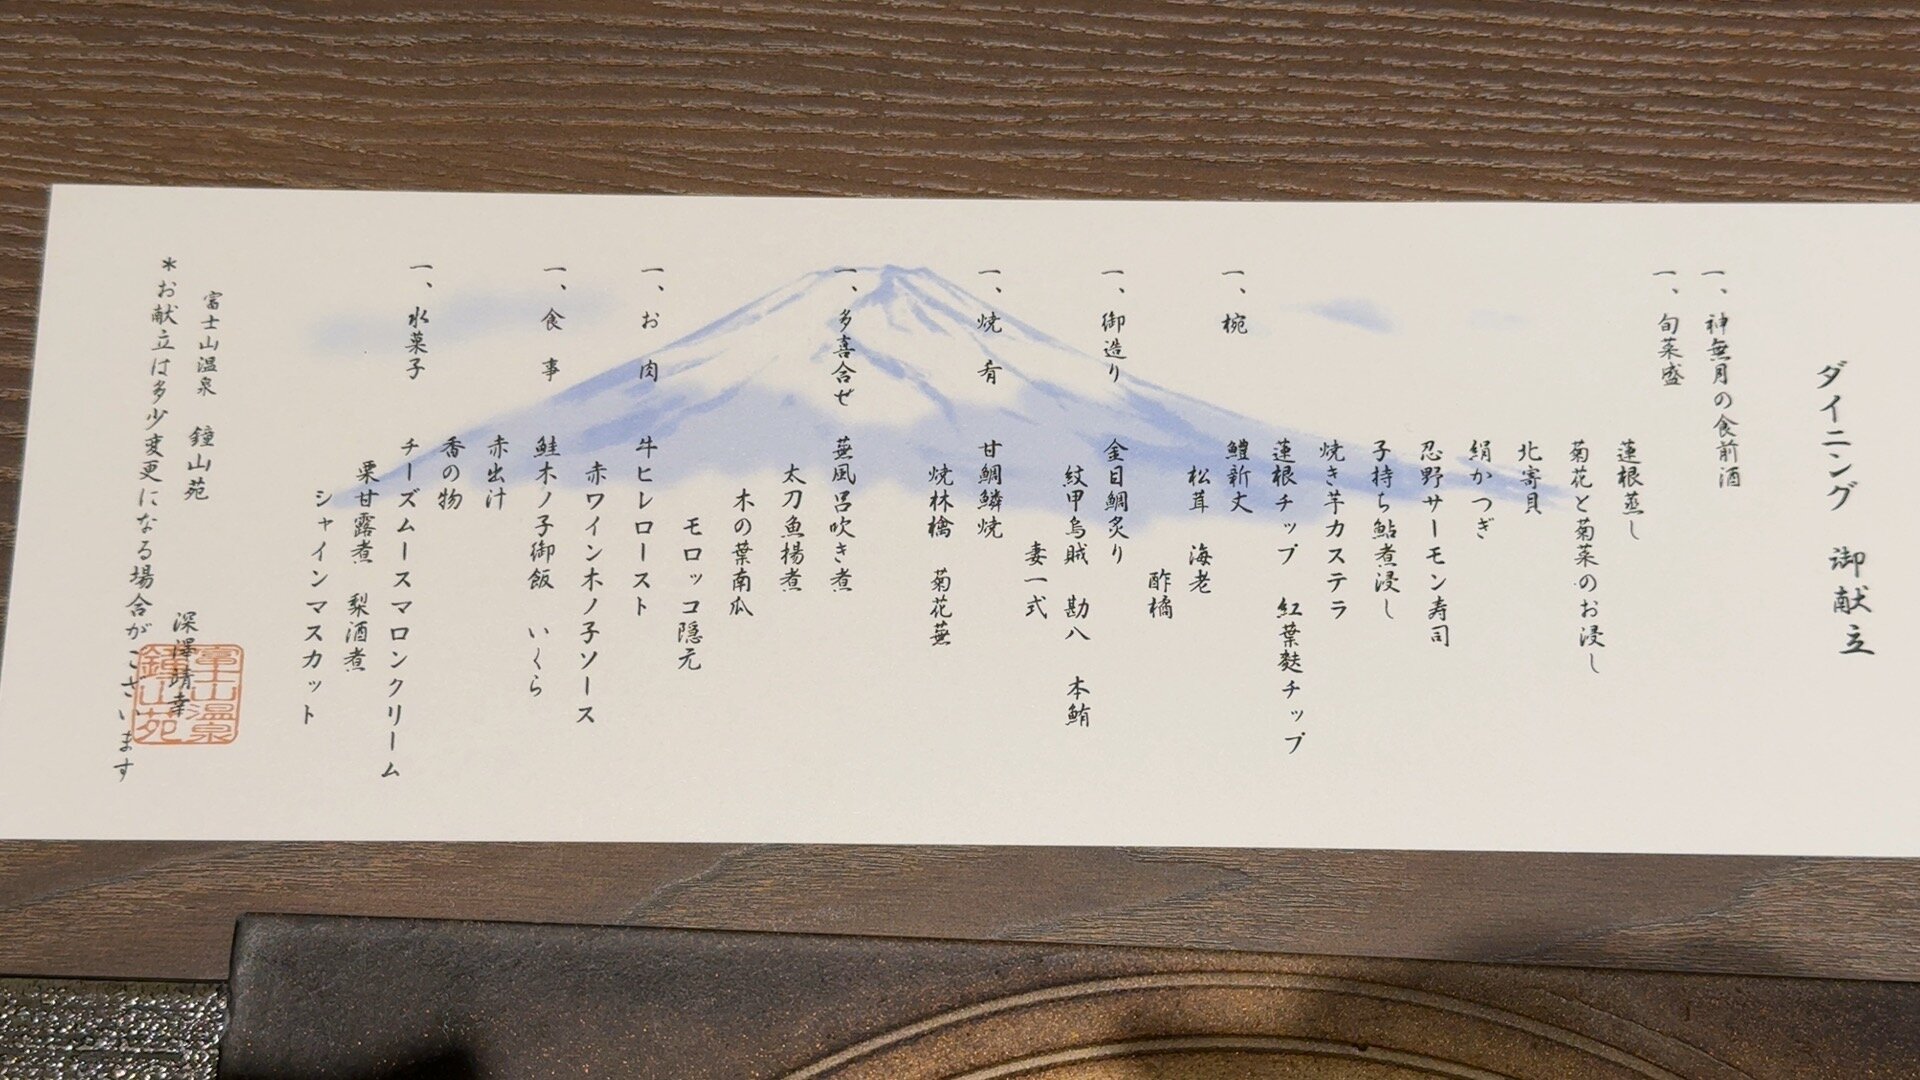 ダイニング 御献立
一、神無月の食前酒
一、旬菜盛
蓮根蒸し
菊花と菊菜のお浸し
北寄貝
絹かつぎ
忍野サーモン寿司
子持ち鮎煮浸し
焼き芋カステラ
蓮根チップ 紅葉麩チップ
一、椀 鱧新丈
松茸 海老
酢橘
一、御造り 金目鯛炙り
紋甲烏賊 勘八 本鮪
妻一式
一、焼肴 甘鯛鱗焼
焼林檎 菊花蕪
一、多喜合せ 蕪風呂吹き煮
太刀魚揚煮
木の葉南瓜
モロッコ隠元
一、お肉 牛ヒレロースト
赤ワイン木ノ子ソース
一、食事 鮭木ノ子御飯 いくら
赤出汁
香の物
一、水菓子 チーズムースマロンクリーム
栗甘露煮 梨酒煮
シャインマスカット
富士山温泉 鐘山苑 深澤靖幸
富士山温泉
鐘山苑
*お献立は多少変更になる場合がございます